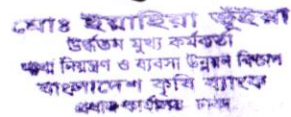 মোঃ ইয়াহিয়া ভূঁইয়া
উর্ধ্বতন মুখ্য কর্মকর্তা
শাখা নিয়ন্ত্রণ ও ব্যবসা উন্নয়ন বিভাগ
বাংলাদেশ কৃষি ব্যাংক
প্রধান কার্যালয় ঢাকা